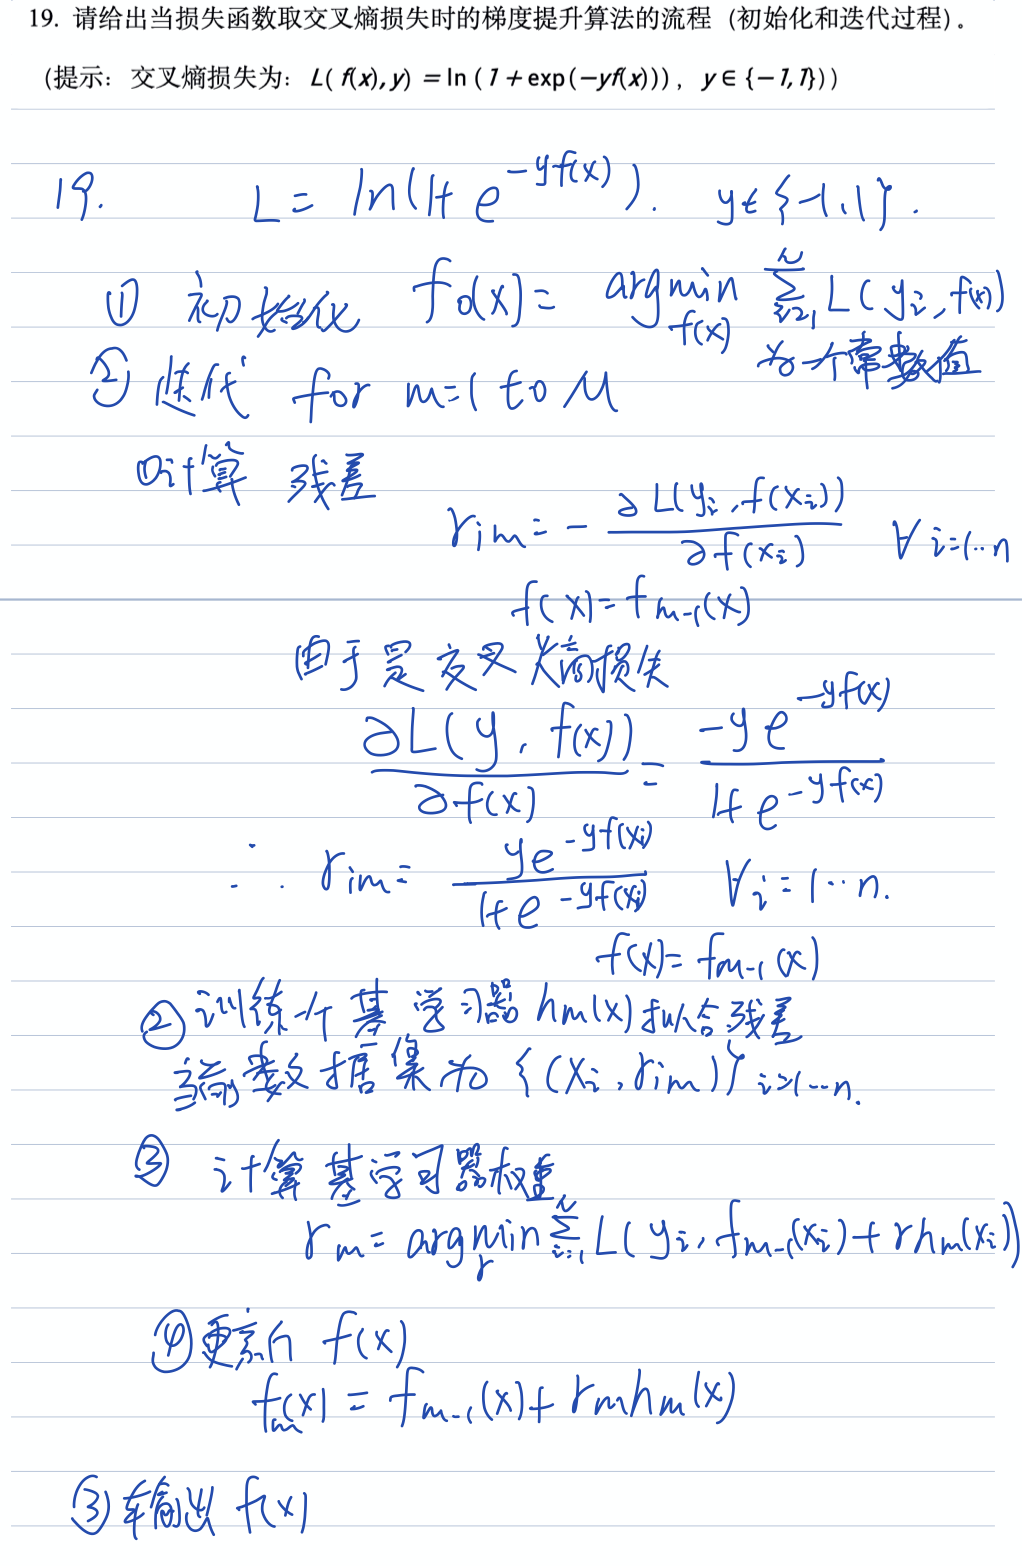 19. 请给出当损失函数取交叉熵损失时的梯度提升算法的流程 (初始化和迭代过程)。
(提示: 交叉熵损失为: L( f(x), y) = ln (1 + exp(−yf(x))) , y ∈ {−1, 1}))
19. L = ln(1+ e^{-yf(x)}). y∈{-1,1}.
① 初始化 f₀(x) = argmin_{f(x)} Σ_{i=1}^{N} L( yᵢ, f(x))
为一个常数值
② 迭代 for m=1 to M
①计算 残差
r_{im} = - ∂L(yᵢ, f(xᵢ)) / ∂f(xᵢ) ∀ i=1..n
f(x) = f_{m-1}(x)
由于是交叉熵损失
∂L(y, f(x)) / ∂f(x) = -ye^{-yf(x)} / 1+e^{-yf(x)}
∴ r_{im} = ye^{-yf(xᵢ)} / 1+e^{-yf(xᵢ)} ∀ i=1..n.
f(x) = f_{m-1}(x)
② 训练一个基学习器 h_m(x) 拟合残差
当前数据集为 {(xᵢ, r_{im})} i=1...n.
③ 计算基学习器权重
r_m = argmin_r Σ_{i=1}^{N} L( yᵢ, f_{m-1}(xᵢ)+rh_m(xᵢ))
④更新 f(x)
f_m(x) = f_{m-1}(x) + r_m h_m(x)
③ 输出 f(x)